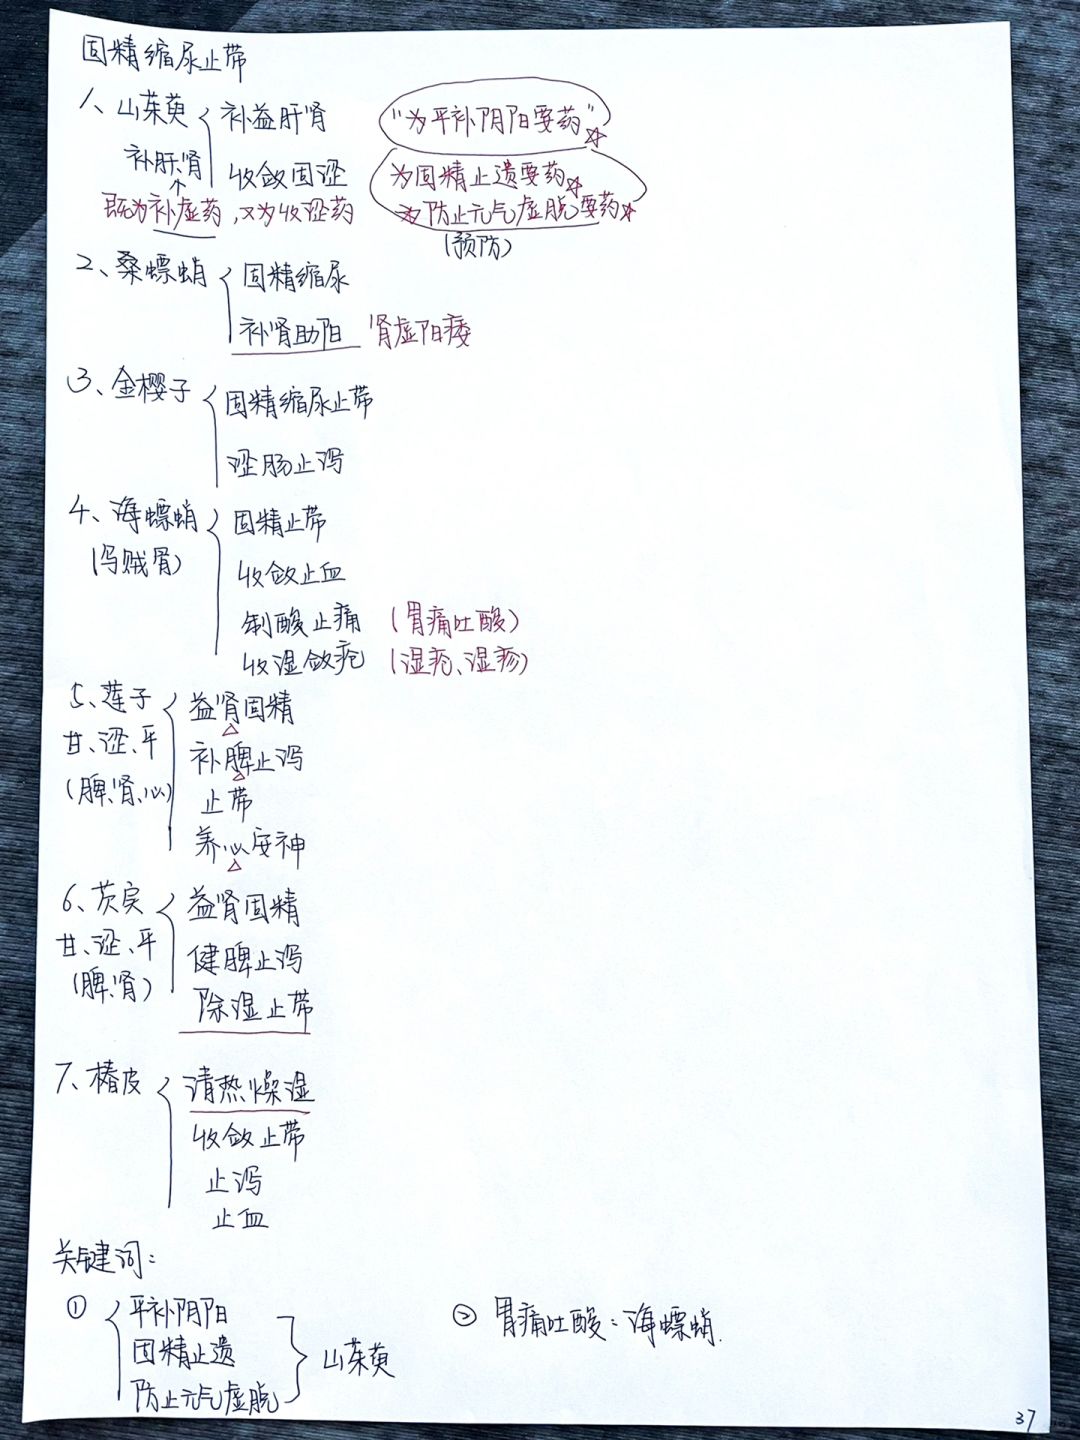 固精缩尿止带
1、山茱萸 补益肝肾 “为平补阴阳要药”☆
补肝肾 收敛固涩 为固精止遗要药☆
既为补虚药，又为收涩药 为防止元气虚脱要药☆
(预防)
2、桑螵蛸 固精缩尿
补肾助阳 肾虚阳痿
3、金樱子 固精缩尿止带
涩肠止泻
4、海螵蛸 固精止带
(乌贼骨) 收敛止血
制酸止痛 (胃痛吐酸)
收湿敛疮 (湿疮、湿疹)
5、莲子 益肾固精
甘、涩、平 补脾止泻
(脾、肾、心) 止带
养心安神
6、芡实 益肾固精
甘、涩、平 健脾止泻
(脾、肾) 除湿止带
7、椿皮 清热燥湿
收敛止带
止泻
止血
关键词：
① 平补阴阳 ② 胃痛吐酸：海螵蛸.
固精止遗 山茱萸
防止元气虚脱
37